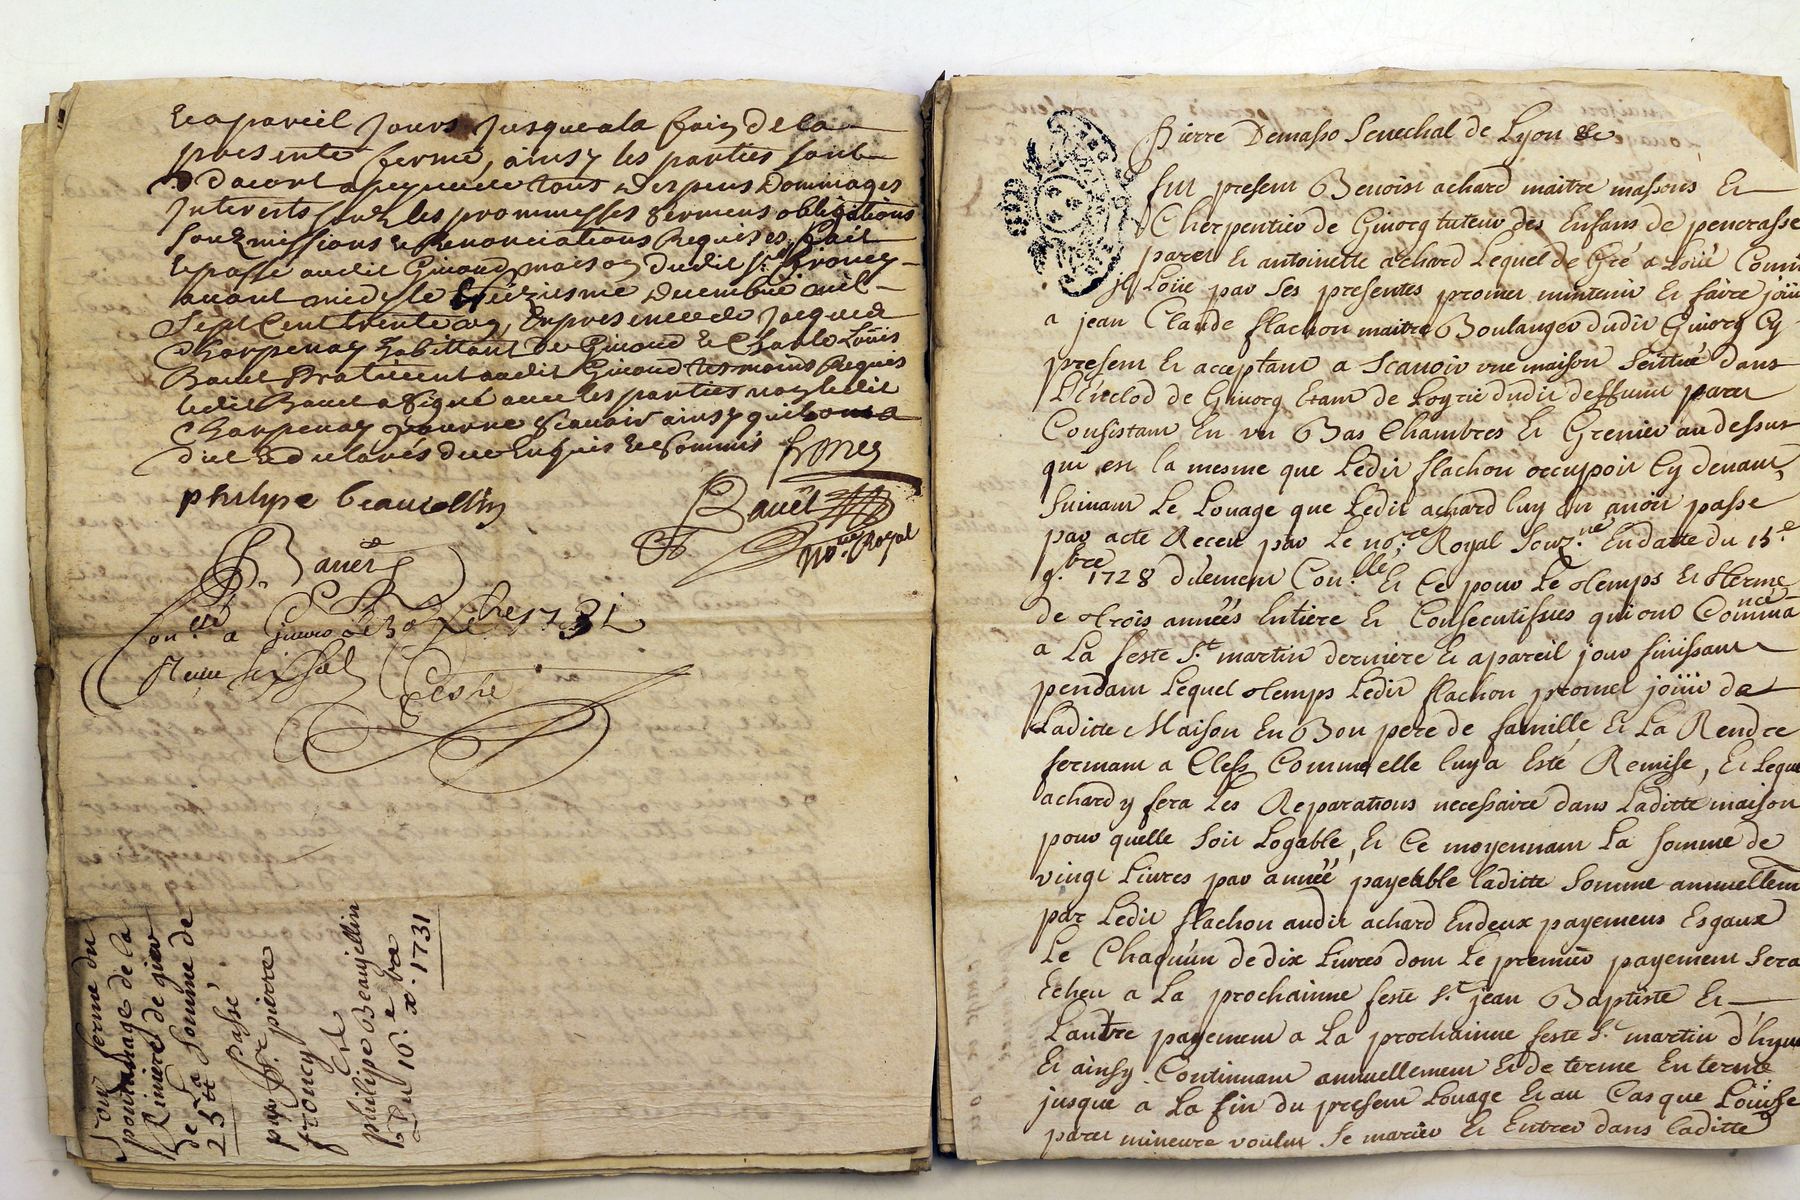 Et a pareil jours jusque a la fain de la
presente ferme, ainsy les parties sont
d'acort a peyne de tous despens dommages
interests sous les prommesses sermens obligations
soubmissions & Renonciations Requises, fait
& passé audit Givord maison dudit Sr. froney
avant midy le seiziesme decembre mil
sept cent trente ung, En presence de Jacques
Charpenay habittant de Givord & Charle Louis
Bauet praticient audit Givord tesmoins Requis
ledit Bauet a signé avec les parties non ledit
Charpenay pour ne scavoir ainsy quil
dit & declarés de ce Enquis & sommis froney
philype beaucollin
Bauet
no.re Royal
Bauet
Con.llé a Givors le 30 Xbre 1731
Receu six sol
Pour ferme du
pontanage de la
Riviere de gier
de La Somme de
25tt Passé
par Sr. pierre
froney Et
philipe Beaujollin
Du 16.e x.bre 1731
Pierre Demasso Senechal de Lyon &c
fut present Benoist achard maitre massons Et
Cherpentier de Givorq tuteur des Enfans de pencrasse
paret Et antoinette achard Lequel de Gré a Loüé Comme
jl Loüe par Ses presentes promet mintenir Et faire joüir
a jean Claude flachon maitre Boulanger dudit Givorq Cy
present Et acceptant a Scavoir une maison Scittué dans
L'Enclod de Givorq Etant de Loyrie dudit deffunt paret
Consistant En un Bas Chambres Et Grenier au dessus
qui est la mesme que Ledit flachon occupoit Cy devant
Suivant Le Louage que Ledit achard luy En avoit passé
par acte Receu par Le no.re Royal Souz.né En datte du 15.e
9.bre 1728 düement Con.llé Et Ce pour Le temps Et terme
de trois années Entiere Et Consecutifves qui ont Commancé
a La feste S.t martin derniere Et a pareil jour finissant
pendant Lequel temps Ledit flachon promet joüir de
Laditte Maison En Bon pere de famille Et La Rendre
fermant a Clefs Comme elle luy a Esté Remise, Et Lequel
achard y fera Les Reparations necessaire dans Laditte maison
pour quelle Soit Logable, Et Ce moyennant La somme de
vingt Livres par année payetble laditte Somme annuellement
par Ledit flachon audit achard En deux payemens Esgaux
Le Chaqu'un de dix Livres dont Le premier payement Sera
Echeu a La prochainne feste S.t jean Baptiste Et
Lautre payement a La prochainne feste S.t martin d'hyver
Et ainsy Continuant annuellement Et de terme En terme
jusque a La fin du present Louage Et au Cas que Loüise
paret mineure voulut Se marier Et Entrer dans laditte